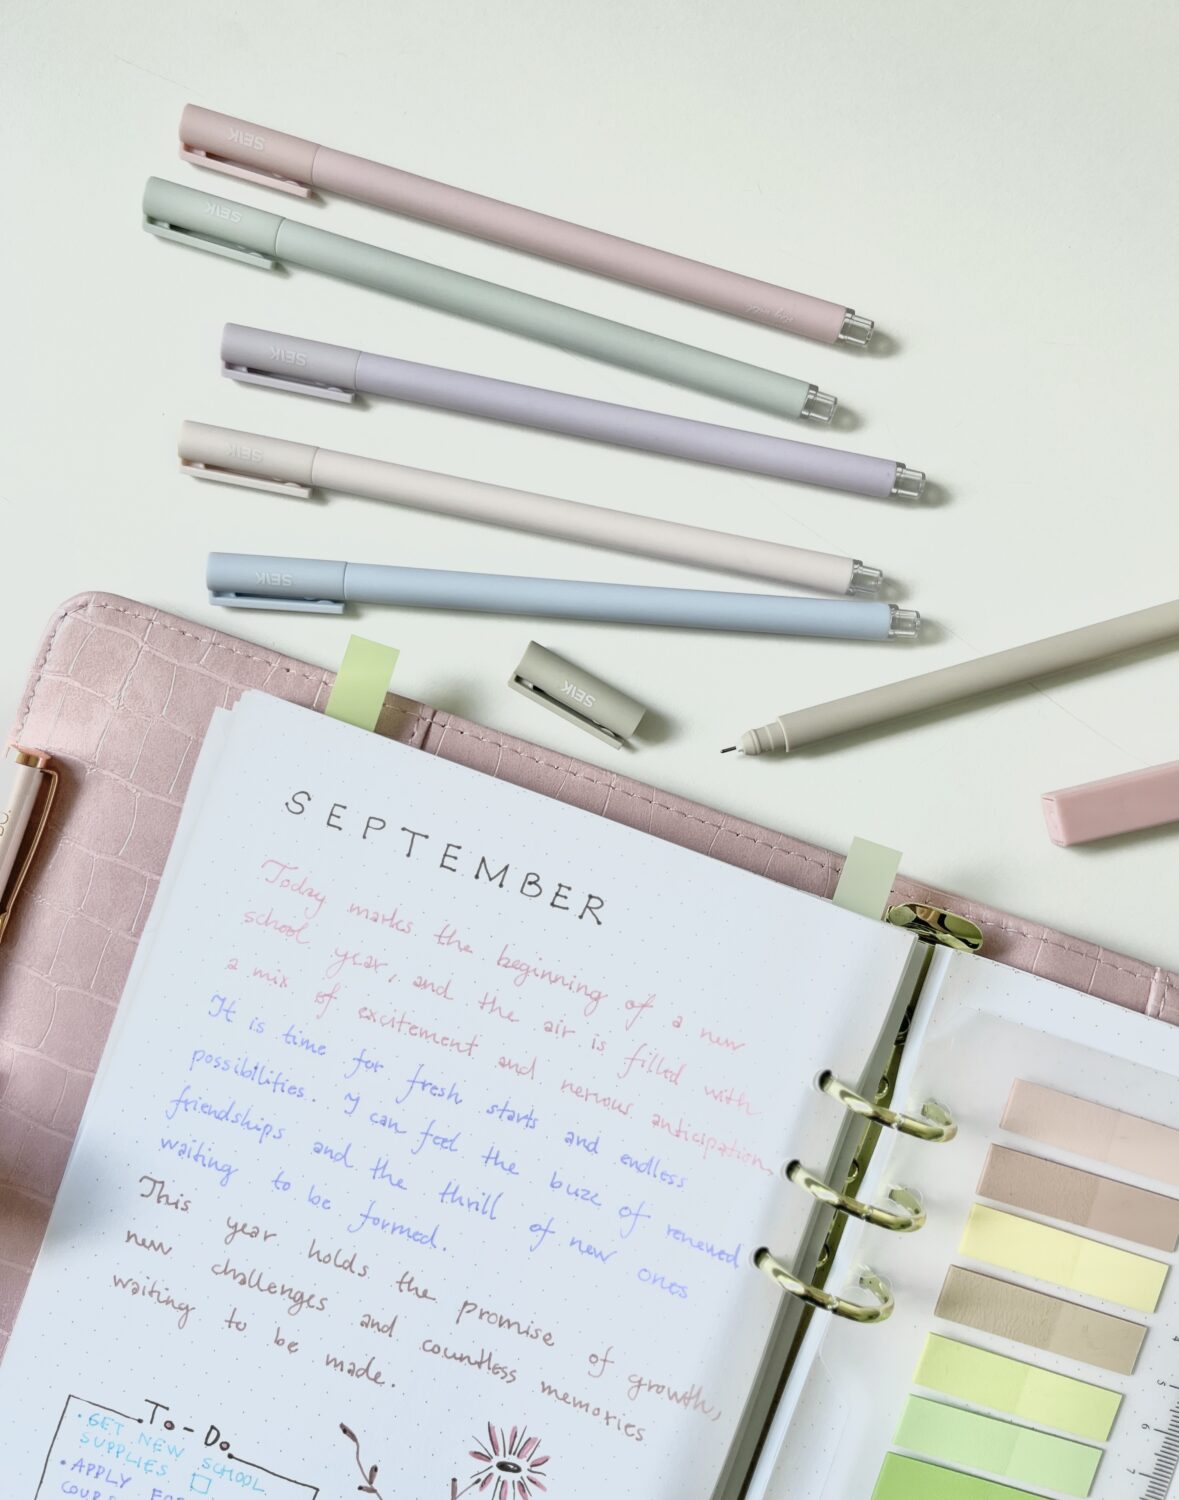 SEIK
SEIK
SEIK
SEIK
SEIK
SEIK
SEPTEMBER
Today marks the beginning of a new
school year, and the air is filled with
a mix of excitement and nervous anticipation.
It is time for fresh starts and endless
possibilities. I can feel the buzz of renewed
friendships and the thrill of new ones
waiting to be formed.
This year holds the promise of growth,
new challenges and countless memories
waiting to be made.
To-Do
• GET NEW SCHOOL
SUPPLIES
• APPLY FOR
4
5
6
7